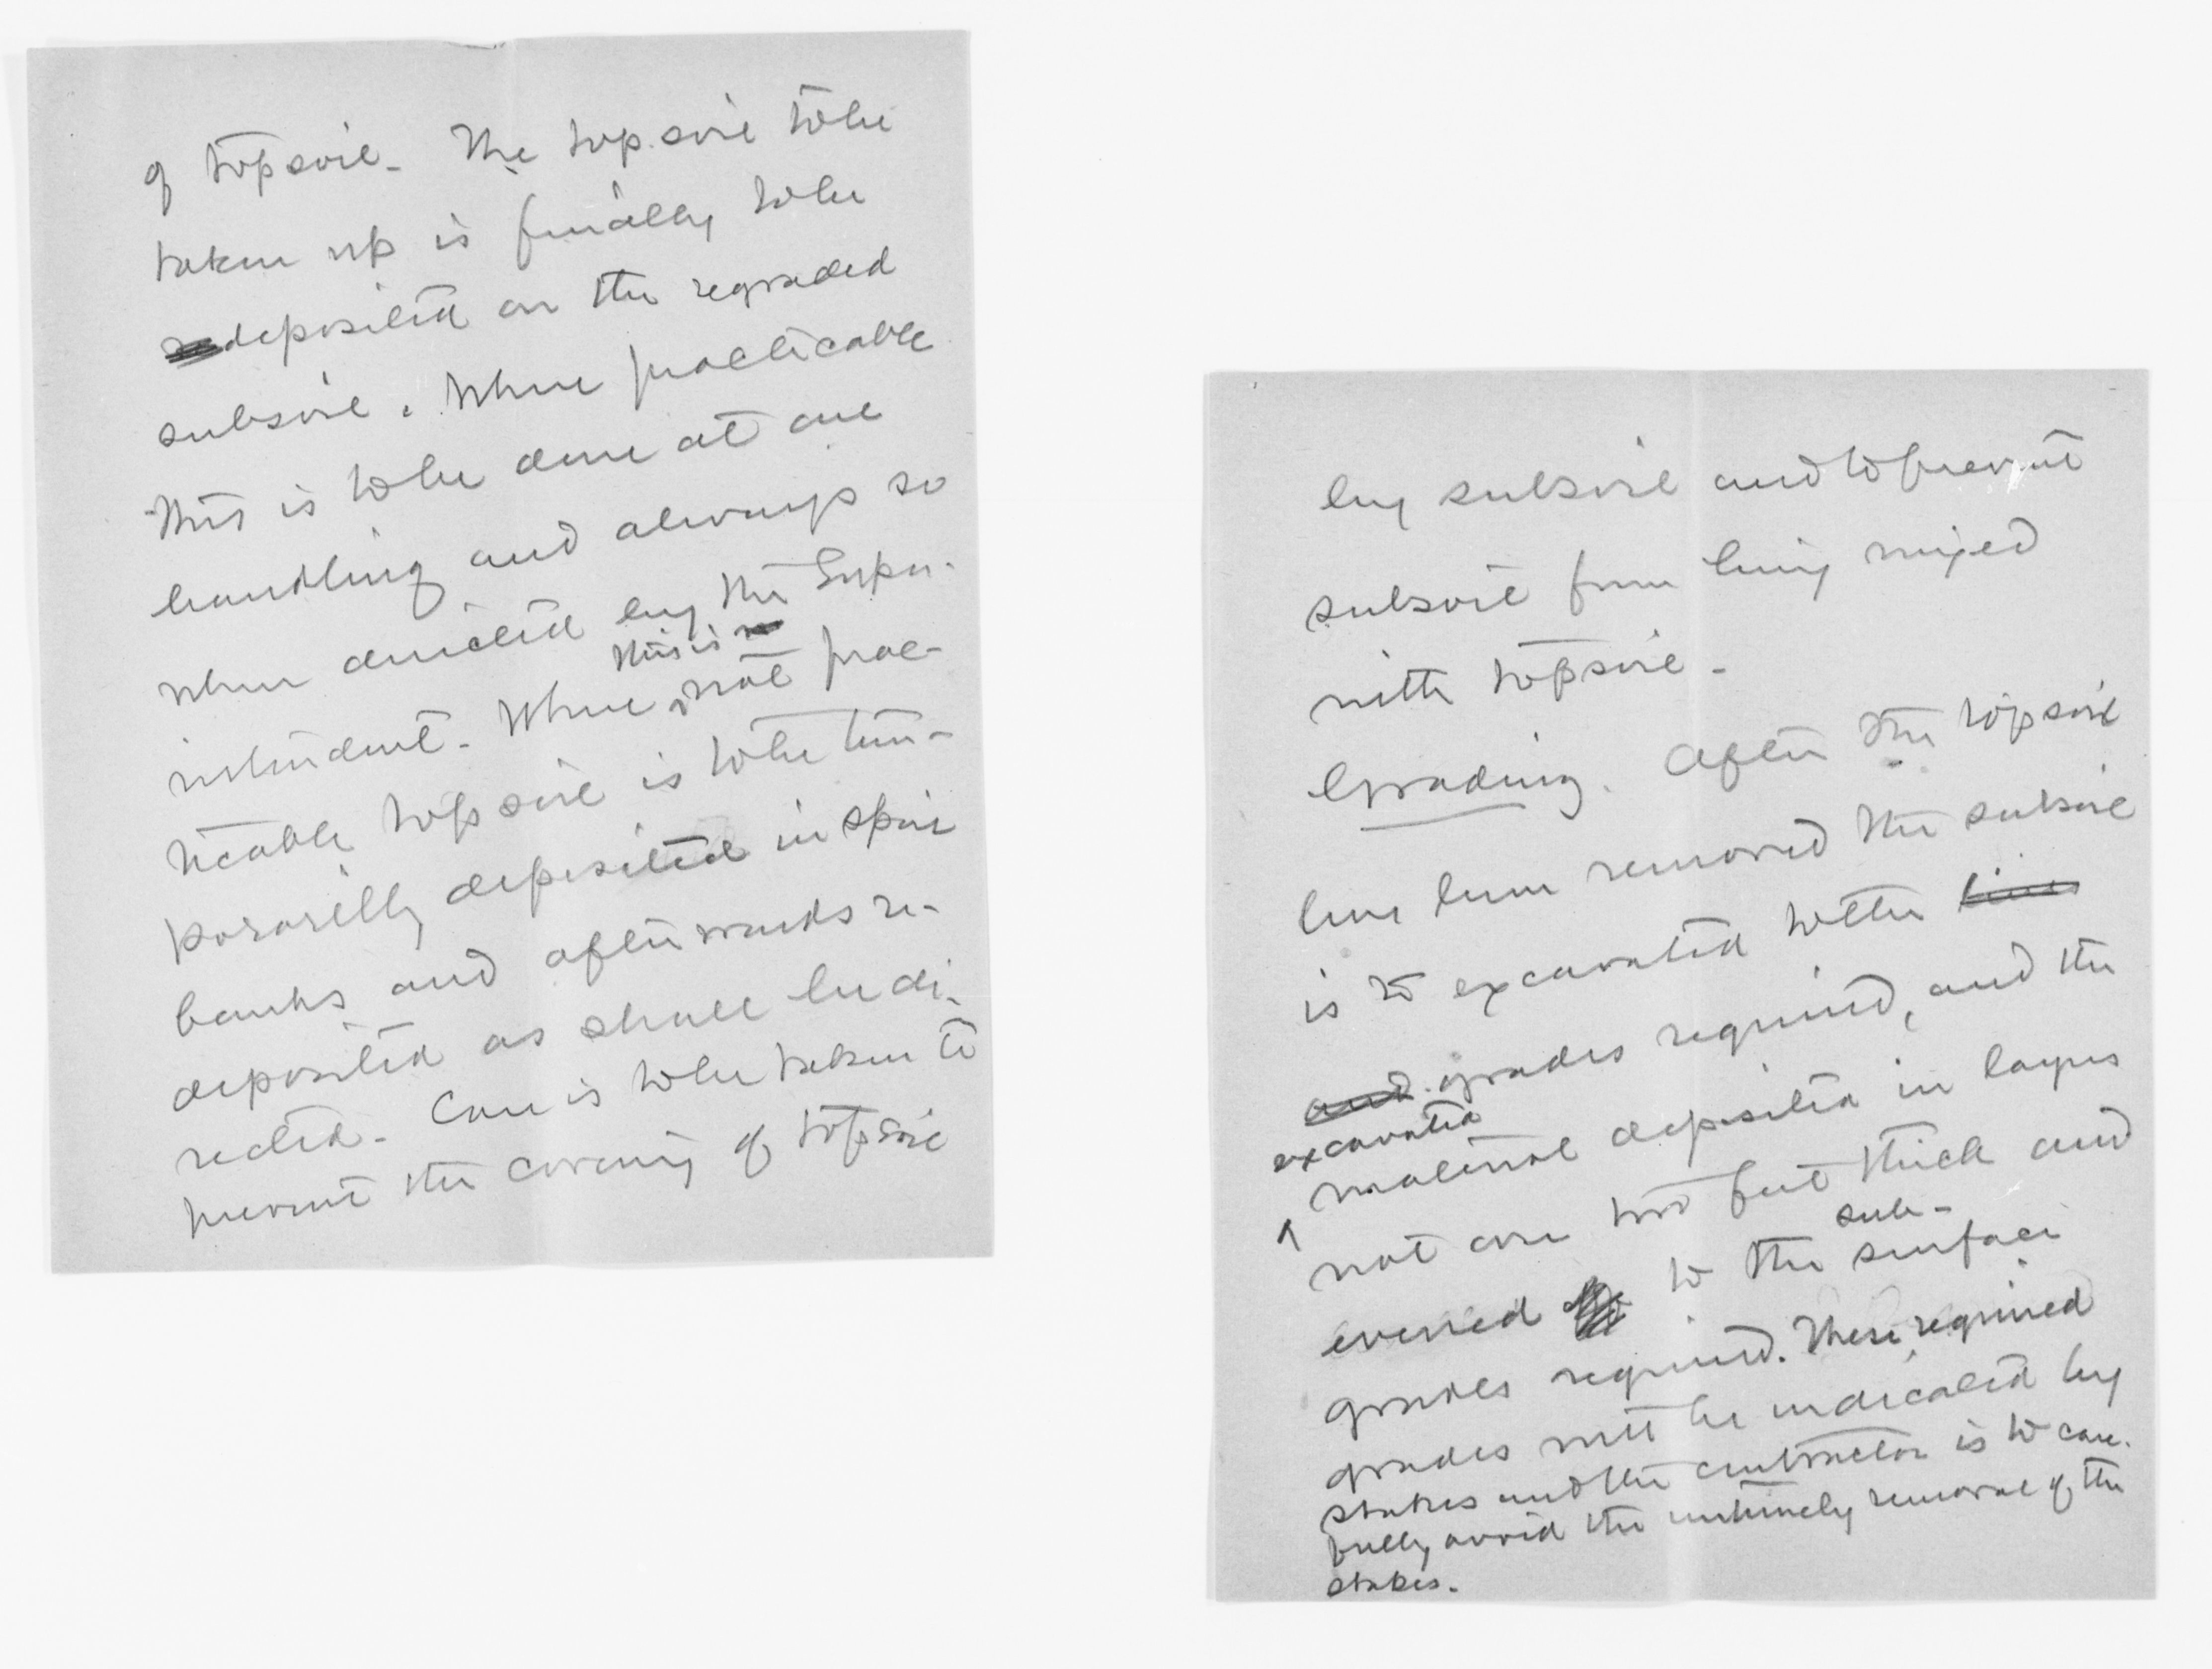 of topsoil. The top soil to be
taken up is finally to be
re deposited on the regraded
subsoil. Where practicable
this is to be done at one
handling and always so
when directed by the Super-
intendent. Where this is not prac-
ticable topsoil is to be tem-
porarilly deposited in spoil
banks and afterwards re-
deposited as shall be di-
rected. Care is to be taken to
prevent the covering of topsoil
by subsoil and to prevent
subsoil from being mixed
with topsoil.
Grading. After the topsoil
has been removed the subsoil
is to excavated to the lines
and grades required, and the
excavated
material deposited in layers
not over two feet thick and
sub-
evened to the surface
grades required. These required
grades will be indicated by
stakes and the contractor is to care-
fully avoid the untimely removal of the
stakes.